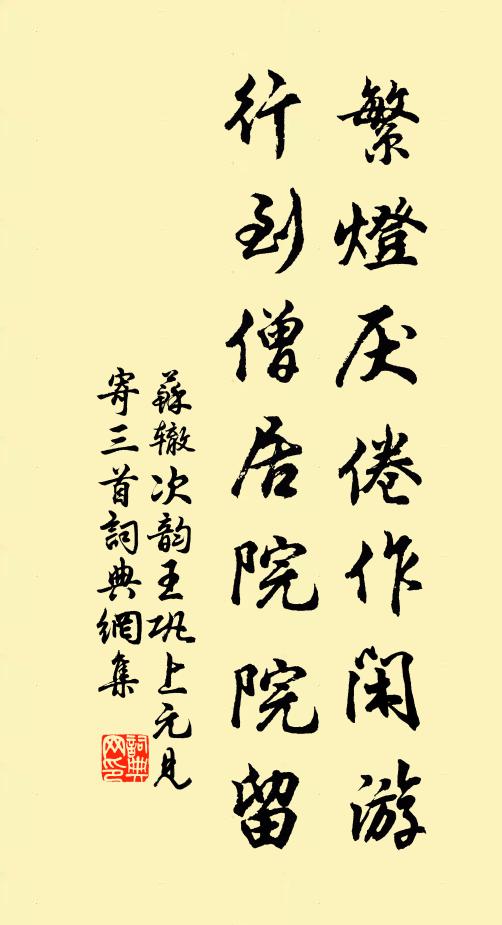 繁燈厌倦作闲游
行到僧居院院留
蘇辙次韵王巩上元見
寄三首詞典網集
詞典网印